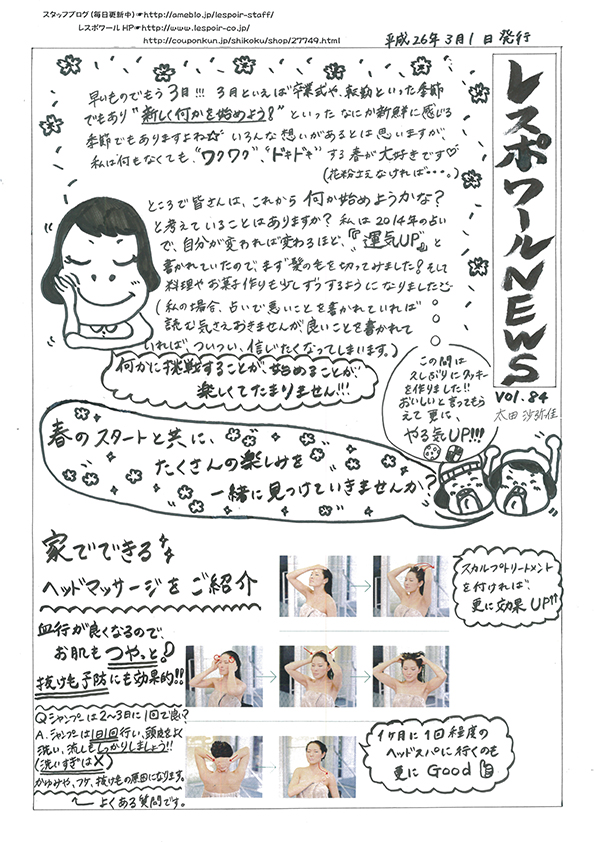 スタッフブログ(毎日更新中)☛http://ameblo.jp/lespoir-staff/
レスポワールHP☛http://www.lespoir-co.jp/
http://couponkun.jp/shikoku/shop/27749.html
平成26年3月1日発行
レスポワールNEWS
Vol.84
太田 沙弥佳
早いものでもう3月!!! 3月といえば卒業式や、転勤といった季節
でもあり"新しく何かを始めよう!"といったなにか新鮮に感じる
季節でもありますよね☆ いろんな想いがあるとは思いますが、
私は何もなくても、"ワクワク"、"ドキドキ"する春が大好きです♡
(花粉さえなければ・・・。)
ところで皆さんは、これから何か始めようかな?
と考えていることはありますか? 私は2014年の占い
で、自分が変われば変わるほど、『運気UP』と
書かれていたので、まず髪の毛を切ってみました!そして
料理やお菓子作りも少しずつするようになりました
(私の場合、占いで悪いことを書かれていれば
読む気さえおきませんが良いことを書かれて
いれば、ついつい、信じたくなってしまいます。)
何かに挑戦することが、始めることが
楽しくてたまりません!!!
この間は
久しぶりにクッキー
を作りました!!
おいしいと言ってもら
えて更に、
やる気UP!!!
春のスタートと共に、
たくさんの楽しみを
一緒に見つけていきませんか?
家でできる
ヘッドマッサージをご紹介
スカルプトリートメント
を付ければ、
更に効果UP↑↑
血行が良くなるので、
お肌もつやっと!
抜け毛予防にも効果的!!
Q シャンプーは2〜3日に1回で良い?
A. シャンプーは1日1回行い、頭皮をよく
洗い、流しもしっかりしましょう!!
(洗いすぎは×)
かゆみや、フケ、抜け毛の原因になります。
よくある質問です。
1ヶ月に1回程度の
ヘッドスパに行くのも
更にGood